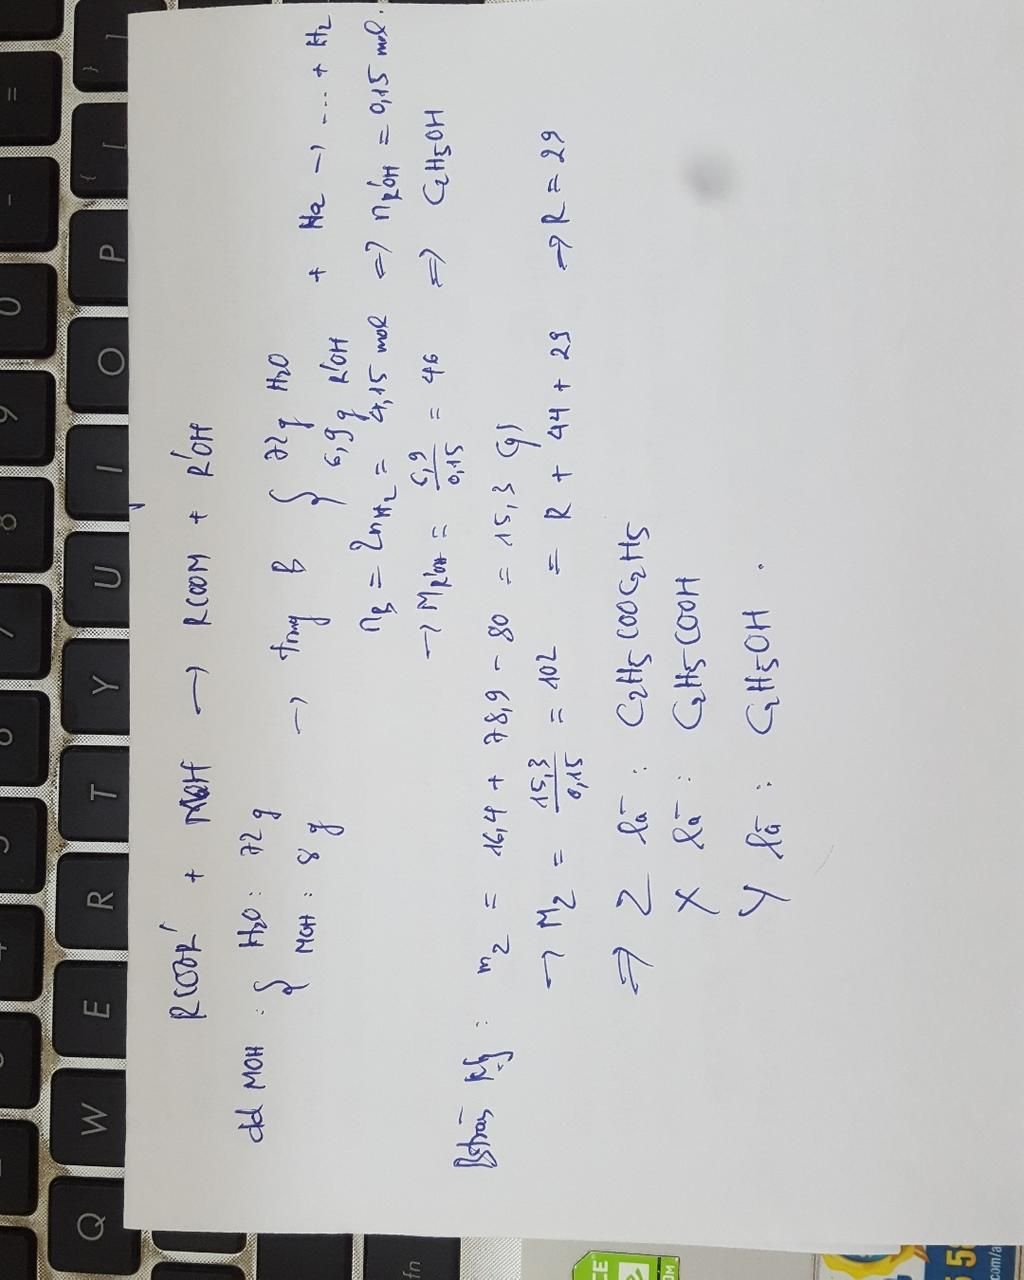 RCOOR' + MOH → RCOOM + R'OH
dd MOH : { H2O : 72 g
MOH : 8 g
→ trong B { 72g H2O
6,9g R'OH
+ Na → ... + H2
nB = 2nH2 = 4,15 mol => nR'OH = 0,15 mol.
→ MR'OH = 6,9/0,15 = 46 => C2H5OH
Bảo toàn klg : mZ = 16,4 + 78,9 - 80 = 15,3 (g)
→ MZ = 15,3/0,15 = 102 = R + 44 + 29 → R = 29
=> Z là : C2H5COOC2H5
X là : C2H5COOH
Y là : C2H5OH .
= - 0 9 8 7 6 5 4
} ] { [ P O I U Y T R E W Q
fn
CE
OM
58
com/a